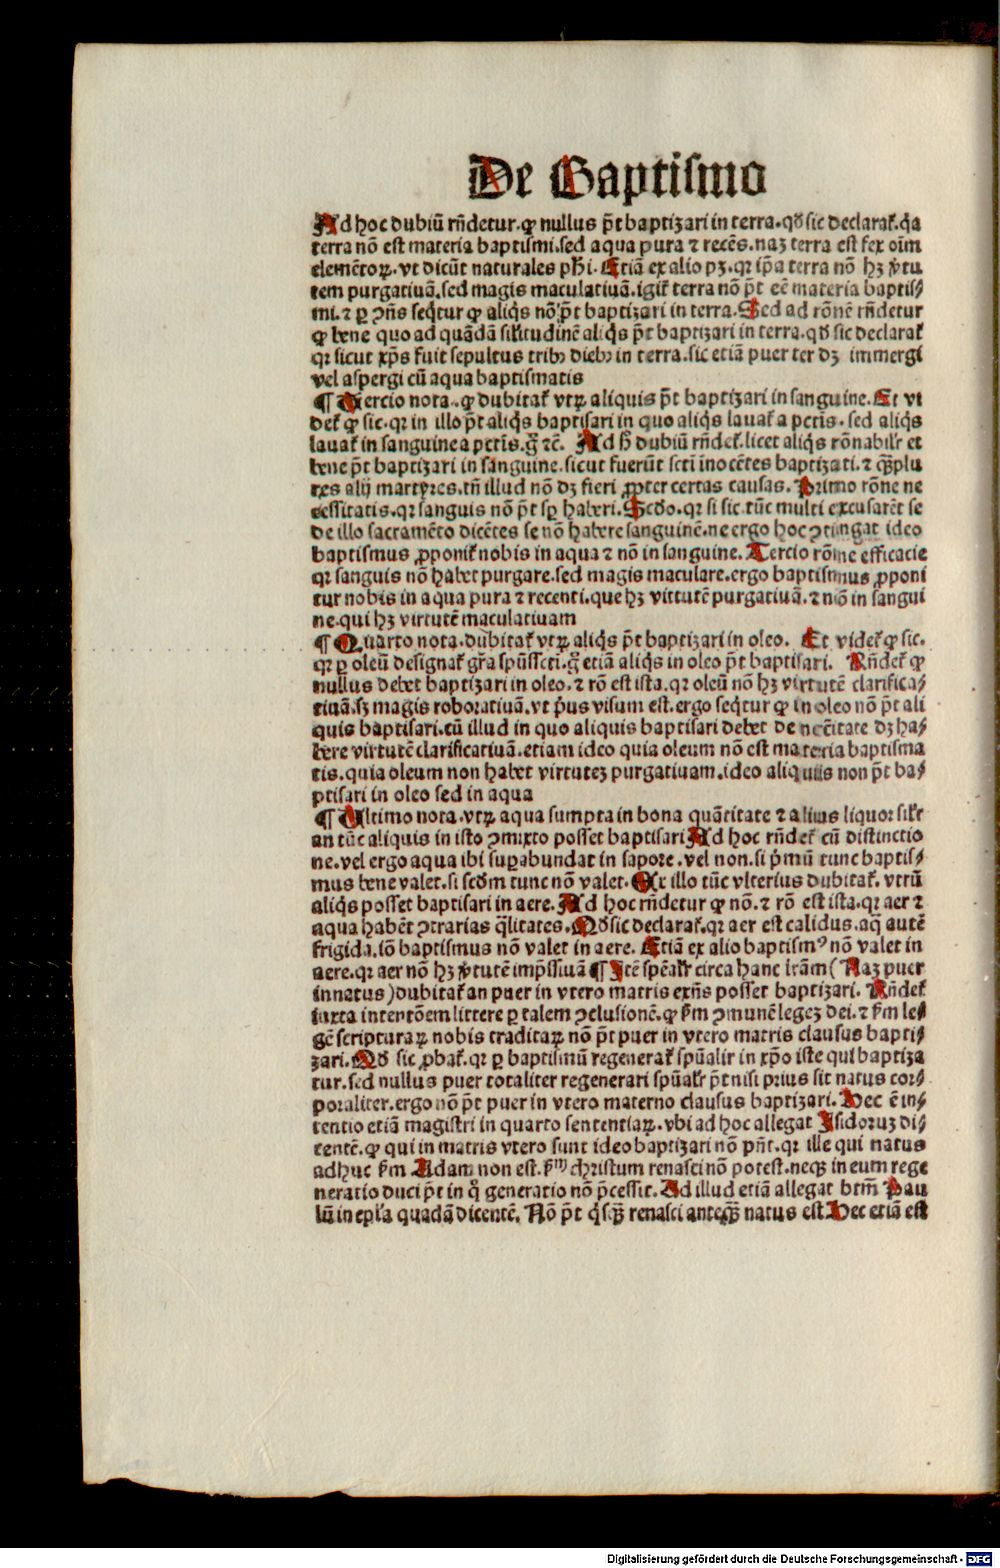 De Baptismo
Ad hoc dubiū rñdetur. ꝙ nullus p̄t baptizari in terra. qđ sic declarat᷑. q̄a
terra nō est materia baptismi. sed aqua pura ⁊ recēs. naꝫ terra est fex oīm
elemētoꝝ. vt dicūt naturales phi. Etiā ex alio pꝫ. qꝛ ip̄a terra nō hꝫ v̄tu
tem purgatiuā. sed magis maculatiuā. igit᷑ terra nō p̄t eē materia baptis⸗
mi. ⁊ ꝑ ꝯñs seq̄tur ꝙ aliq̄s nō p̄t baptizari in terra. Sed ad rōnē rñdetur
ꝙ bene quo ad quādā sil̄itudinē aliq̄s p̄t baptizari in terra. qđ sic declarat᷑
qꝛ sicut xp̄s fuit sepultus tribꝰ diebꝰ in terra. sic etiā puer ter dꝫ immergi
vel aspergi cū aqua baptismatis
¶ Tercio nota. ꝙ dubitat᷑ vtꝝ aliquis p̄t baptizari in sanguine. Et vi
det᷑ ꝙ sic. qꝛ in illo p̄t aliq̄s baptisari in quo aliq̄s lauat᷑ a pctīs. sed aliq̄s
lauat᷑ in sanguine a pctīs. g̊ ⁊c̄. Ad h̄ dubiū rñdet᷑. licet aliq̄s rōnabil̄r et
bene p̄t baptizari in sanguine. sicut fuerūt scti inocētes baptizati. ⁊ q̄ꝫplu
res alij martyres. tñ illud nō dꝫ fieri ꝓpter certas causas. Primo rōne ne
cessitatis. qꝛ sanguis nō p̄t sꝑ haberi. Scđo. qꝛ si sic tūc multi excusarēt se
de illo sacramēto dicētes se nō habere sanguinē. ne ergo hoc ꝯtingat ideo
baptismus ꝓponit᷑ nobis in aqua ⁊ nō in sanguine. Tercio rōne efficacie
qꝛ sanguis nō habet purgare. sed magis maculare. ergo baptismus ꝓponi
tur nobis in aqua pura ⁊ recenti. que hꝫ virtutē purgatiuā. ⁊ nō in sangui
ne. qui hꝫ virtutē maculatiuam
¶ Quarto nota. dubitat᷑ vtꝝ aliq̄s p̄t baptizari in oleo. Et videt᷑ ꝙ sic.
qꝛ ꝑ oleū designat᷑ gr̄a spūssct̄i. g̊ etiā aliq̄s in oleo p̄t baptisari. Rñdet᷑ ꝙ
nullus debet baptizari in oleo. ⁊ rō est ista. qꝛ oleū nō hꝫ virtutē clarifica⸗
tiuā. sꝫ magis roboratiuā. vt p̄us visum est. ergo seq̄tur ꝙ in oleo nō p̄t ali
quis baptisari. cū illud in quo aliquis baptisari debet de nec̄itate dꝫ ha⸗
bere virtutē clarificatiuā. etiam ideo quia oleum nō est materia baptisma
tis. quia oleum non habet virtuteꝫ purgatiuam. ideo aliquis non p̄t ba⸗
ptisari in oleo sed in aqua
¶ Vltimo nota. vtꝝ aqua sumpta in bona quātitate ⁊ alius liquor sil̄r
an tūc aliquis in isto ꝯmixto posset baptisari Ad hoc rñdet᷑ cū distinctio
ne. vel ergo aqua ibi suꝑabundat in sapore. vel non. si p̄mū tunc baptis⸗
mus bene valet. si scđm tunc nō valet. Ex illo tūc vlterius dubitat᷑. vtrū
aliq̄s posset baptisari in aere. Ad hoc rñdetur ꝙ nō. ⁊ rō est ista. qꝛ aer ⁊
aqua habēt ꝯtrarias q̄litates. Qđ sic declarat᷑. qꝛ aer est calidus. aq̄ autē
frigida. iō baptismus nō valet in aere. Etiā ex alio baptismꝰ nō valet in
aere. qꝛ aer nō hꝫ v̄tutē imp̄ssiuā ¶ Itē spēal̄r circa hanc l̄rām (Naꝫ puer
innatus) dubitat᷑ an puer in vtero matris exn̄s posset baptizari. Rñdet᷑
iuxta intentōem littere ꝑ talem ꝯclusionē. ꝙ ẜm ꝯmunē legeꝫ dei. ⁊ ẜm le⸗
gē scripturaꝝ nobis traditaꝝ nō p̄t puer in vtero matris clausus bapti⸗
zari. Qđ sic ꝓbat᷑. qꝛ ꝑ baptismū regenerat᷑ spūalir in xp̄o iste qui baptiza
tur. sed nullus puer totaliter regenerari spūal̄r p̄t nisi prius sit natus cor⸗
poraliter. ergo nō p̄t puer in vtero materno clausus baptizari. Hec ē in⸗
tentio etiā magistri in quarto sententiaꝝ. vbi ad hoc allegat Isidoruꝫ di⸗
centē. ꝙ qui in matris vtero sunt ideo baptizari nō pn̄t. qꝛ ille qui natus
adhuc ẜm Adam non est. ẜm christum renasci nō potest. neqꝫ in eum rege
neratio duci p̄t in q̊ generatio nō p̄cessit. Ad illud etiā allegat btm̄ Pau
lū in ep̄la quadā dicentē. Nō p̄t q̄sq̄ꝫ renasci anteq̄ꝫ natus est Hec etiā est
Digitalisierung gefördert durch die Deutsche Forschungsgemeinschaft - DFG